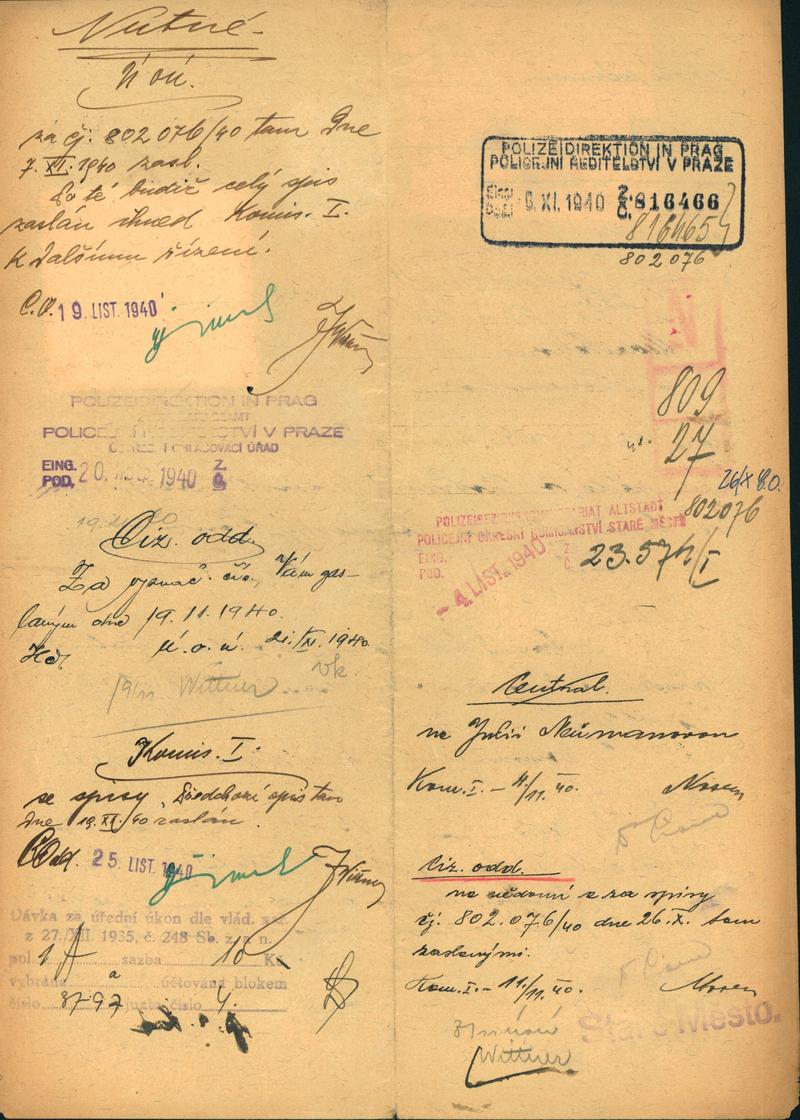 Nutné.
za čj. 802 076/40 tam dne
7. XI. 1940 zasl.
Po té budiž celý spis
zaslán ihned Komis. I.
k dalšímu řízení.
C.O. 19. LIST. 1940
POLIZEIDIREKTION IN PRAG
POLICEJNÍ ŘEDITELSTVÍ V PRAZE
EING.
POD. 20. 1940 Z. Č.
19.11.40
Ciz. odd.
Za Vám zas-
laným dne 19. 11. 1940.
21./XI. 1940.
vk.
Wittner
Komis. I.
se spisy. Předchozí spis tam
dne 19. XI./40 zaslán.
Odd. 25 LIST. 1940
Dávka za úřední úkon dle vlád. nař.
z 27./XII. 1935, č. 248 Sb. z. a n.
pol. 1 sazba 10 Kč
vybrána a účtována blokem
číslo 3797 juxta číslo 4.
POLIZEIDIREKTION IN PRAG
POLICEJNÍ ŘEDITELSTVÍ V PRAZE
Eing.
Došl. 6. XI. 1940 Z. Č. 816466
816465
802076
809
27
26/X 80.
802076
POLIZEIBEZIRKSKOMMISSARIAT ALTSTADT
POLICEJNÍ OKRESNÍ KOMISAŘSTVÍ STARÉ MĚSTO
EING.
POD. - 4. LIST. 1940 Z. Č. 23.574/I
Central.
na Julii Neumannovou
Kom. I. - 4./11. 40.
Ciz. odd.
na vědomí a za spisy
čj. 802.076/40 dne 26. X. tam
zaslanými.
Kom. I. - 11./11. 40.
Staré Město.
Wittner